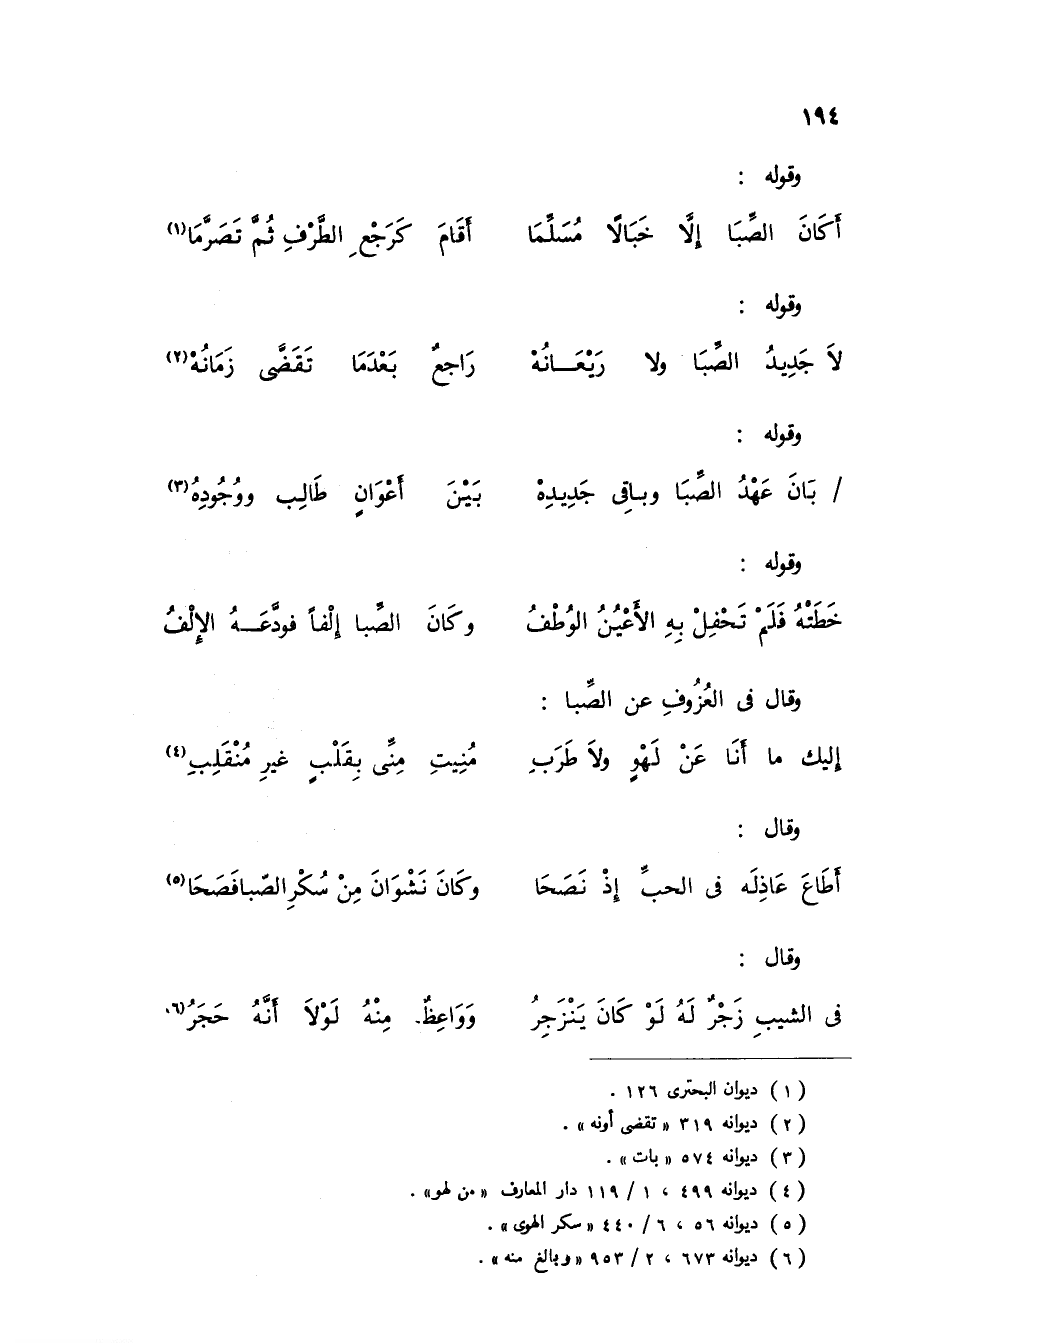 ١٩٤
وقوله :
أَكَانَ الصِّبَا إِلَّا خَبَالًا مُسَلِّمَا أَقَامَ كَرَجْعِ الطَّرْفِ ثُمَّ تَصَرَّمَا(١)
وقوله :
لاَ جَدِيدُ الصِّبَا ولا رَيْعَــانُهْ رَاجعٌ بَعْدَمَا تَقَضَّى زَمَانُهْ(٢)
وقوله :
/ بَانَ عَهْدُ الصِّبَا وباقى جَدِيدِهْ بَيْنَ أَعْوَانِ طَالِب ووُجُودِهُ(٣)
وقوله :
خَطَتْهُ فَلَمْ تَحْفِلْ بِهِ الأَعْيُنُ الوُطْفُ وكَانَ الصِّبا إِلْفاً فودَّعَــهُ الإِلْفُ
وقال فى العُزُوفِ عن الصِّبا :
إليك ما أَنَا عَنْ لَهْوٍ ولاَ طَرَبِ مُنِيتِ مِنِّى بِقَلْبٍ غيرِ مُنْقَلِبِ(٤)
وقال :
أَطَاعَ عَاذِلَه فى الحبِّ إِذْ نَصَحَا وكَانَ نَشْوَانَ مِنْ سُكْرِ الصّبا فَصَحَا(٥)
وقال :
فى الشيبِ زَجْرٌ لَهُ لَوْ كَانَ يَنْزَجِرُ وَوَاعِظٌ مِنْهُ لَوْلاَ أَنَّهُ حَجَرُ(٦)
(١) ديوان البحترى ١٢٦ .
(٢) ديوانه ٣١٩ « تقضى أونه » .
(٣) ديوانه ٥٧٤ « بات » .
(٤) ديوانه ٤٩٩ ، ١ / ١١٩ دار المعارف « من لهو » .
(٥) ديوانه ٥٦ ، ٦ / ٤٤٠ « سكر الهوى » .
(٦) ديوانه ٦٧٣ ، ٢ / ٩٥٣ « وبالغ منه » .